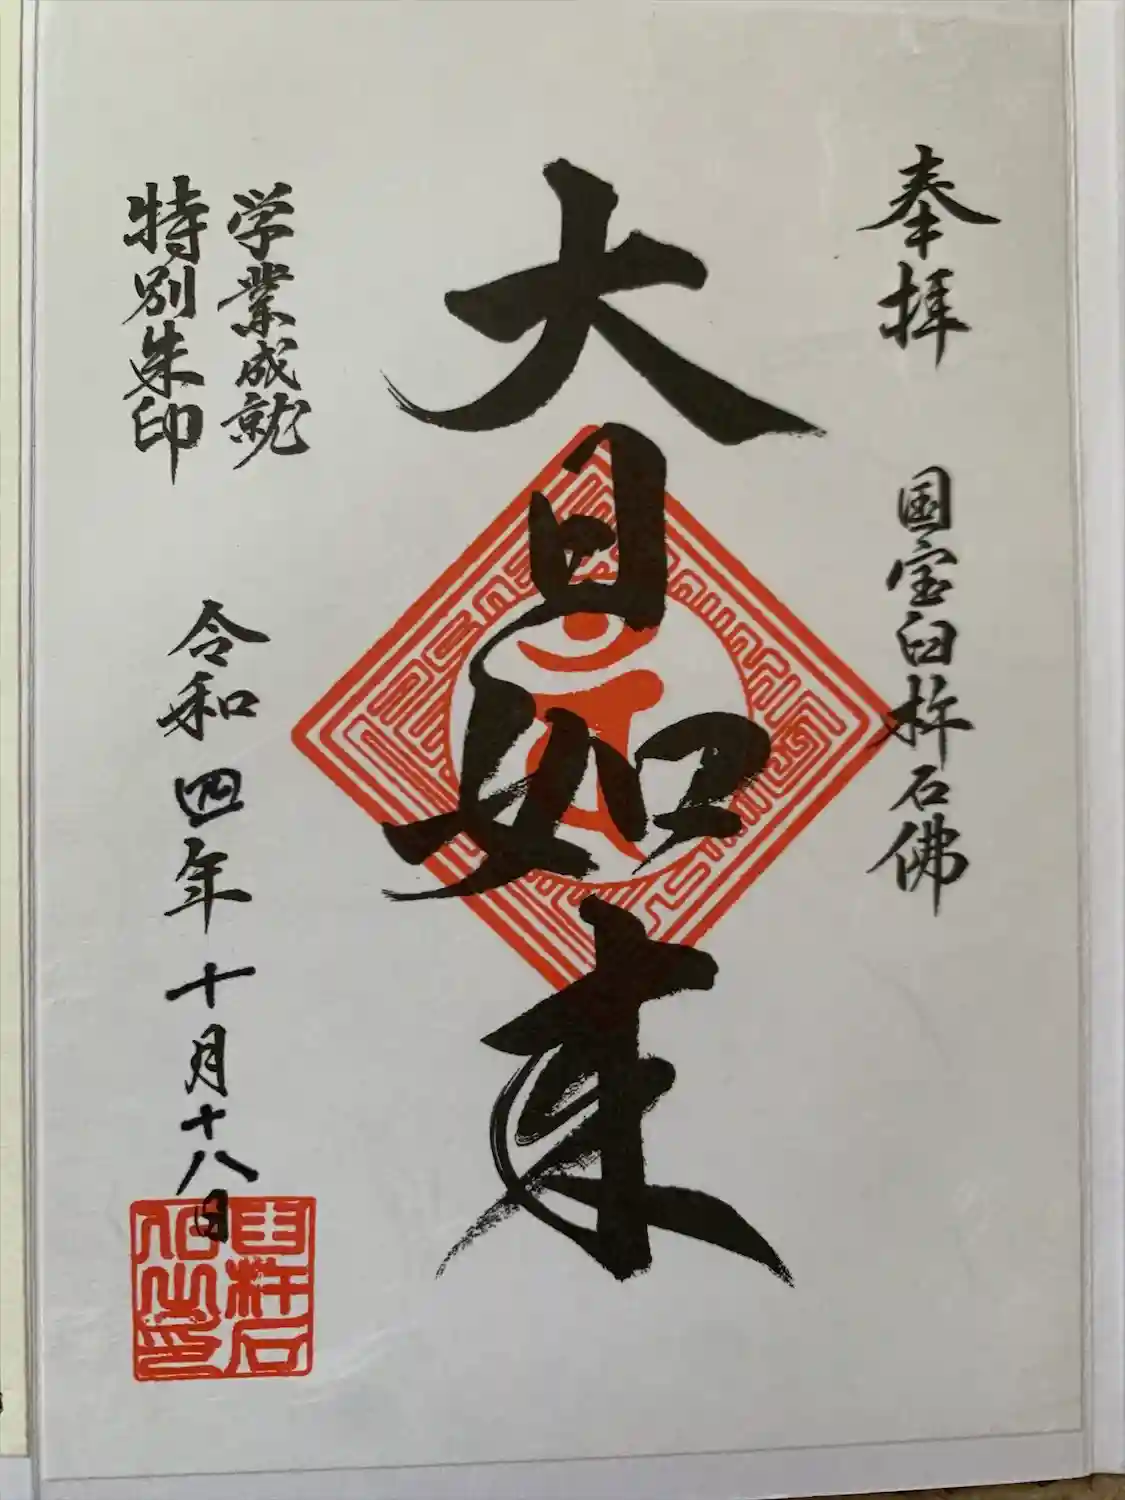 奉拝
国宝臼杵石佛
大日如来
学業成就
特別朱印
令和四年十月十八日
臼杵石
仏之印